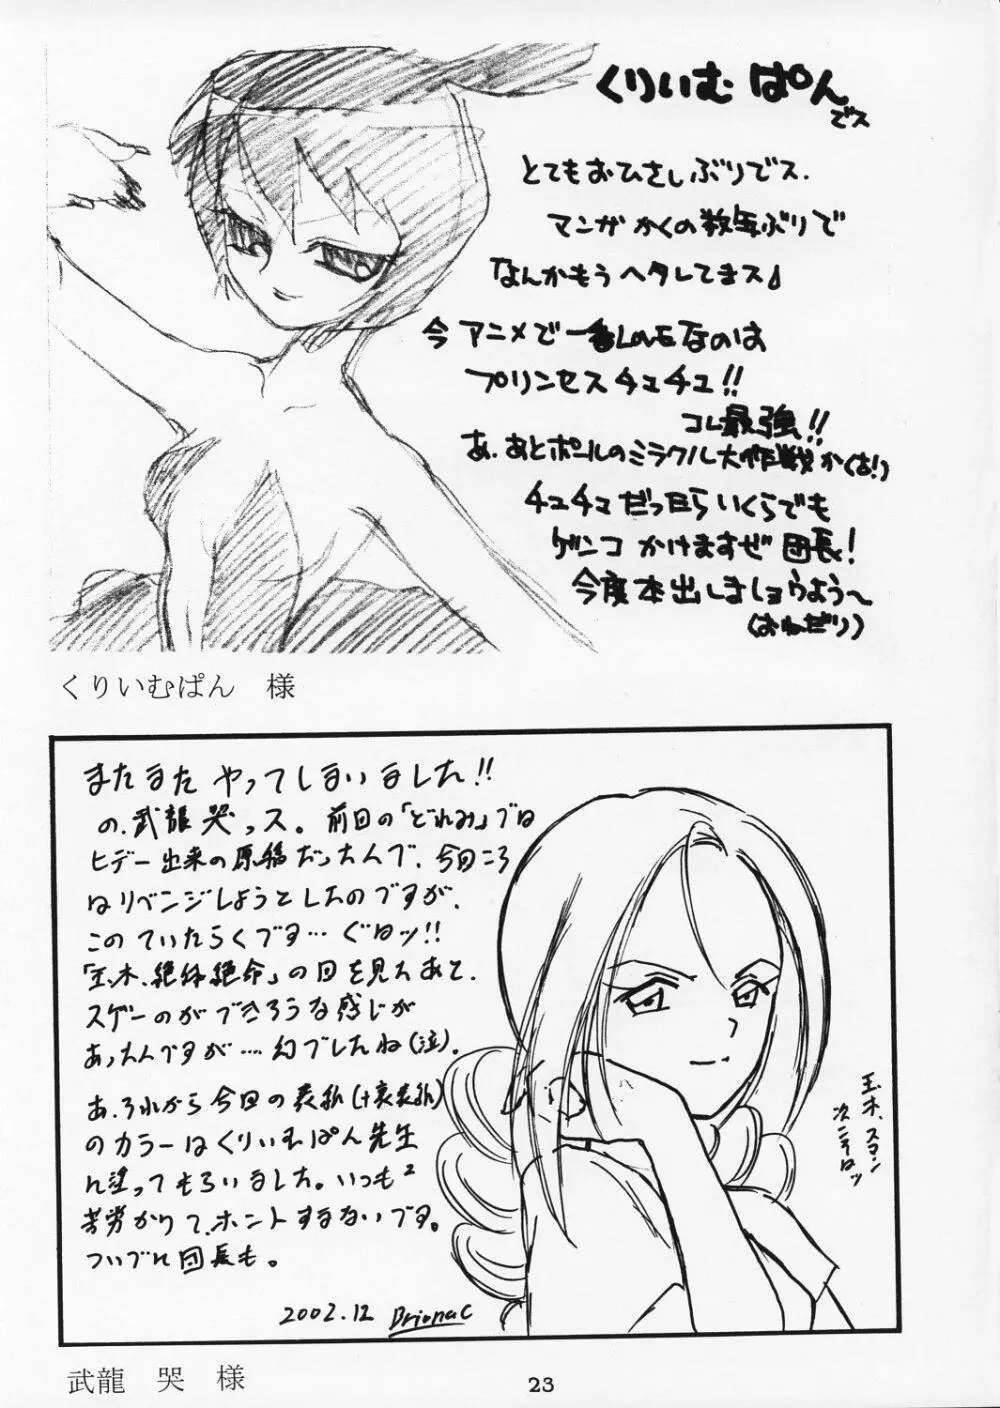 くりいむ ぱん
でス
とてもおひさしぶりでス.
マンガ かくの数年ぶりで
なんかもう ヘタレてまス
今 アニメで一番Loveなのは
プリンセスチュチュ!!
コレ最強!!
あ. あとポールのミラクル大作戦か(古!)
チュチュだったらいくらでも
ゲンコ かけますぜ 団長!
今度本出しましょうよう〜
(おねだり)
くりいむぱん 様
またまた やってしまいました!!
の、武龍 哭っス。前回の「どれみ」では
ヒデー出来の原稿だったんで、今回こそ
はリベンジしようとしたのですが、
このていたらくです… ぐはッ!!
「玉木、絶体絶命」の回を見たあと、
スゲーのができそうな感じが
あったんですが…幻でしたね(泣).
あ、それから今回の表紙(+裏表紙)
のカラーはくりいむぱん先生
に塗ってもらいました。いつも²
苦労かけて、ホントすまないです。
ついでに団長も。
2002.12 Brionac
玉木、スマン
次こそはッ
武龍 哭 様
23